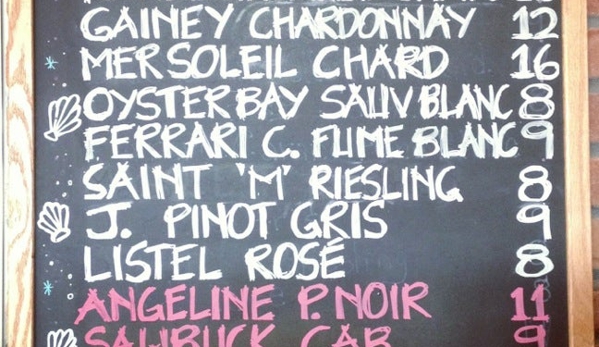 GAINEY CHARDONNAY 12
MER SOLEIL CHARD 16
OYSTER BAY SAUV BLANC 8
FERRARI C. FUME BLANC 9
SAINT 'M' RIESLING 8
J. PINOT GRIS 9
LISTEL ROSÉ 8
ANGELINE P. NOIR 11
SAWBUCK CAB 9